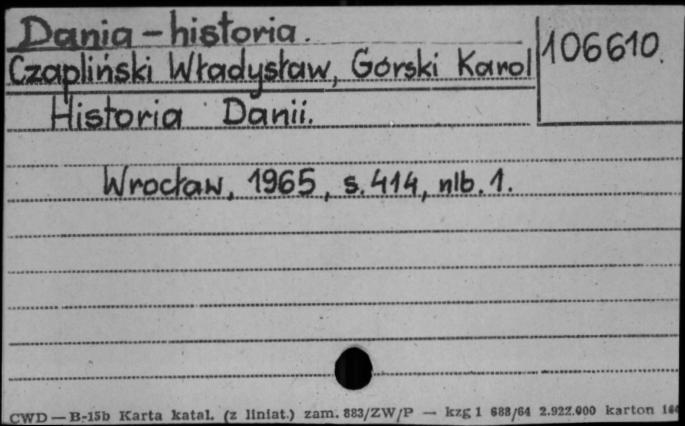 Dania – historia.
106610.
Czapliński Władysław, Górski Karol
Historia Danii.
Wrocław, 1965, s. 414, nlb. 1.
CWD — B-15b Karta katal. (z liniat.) zam. 883/ZW/P — kzg 1 688/64 2.922.000 karton